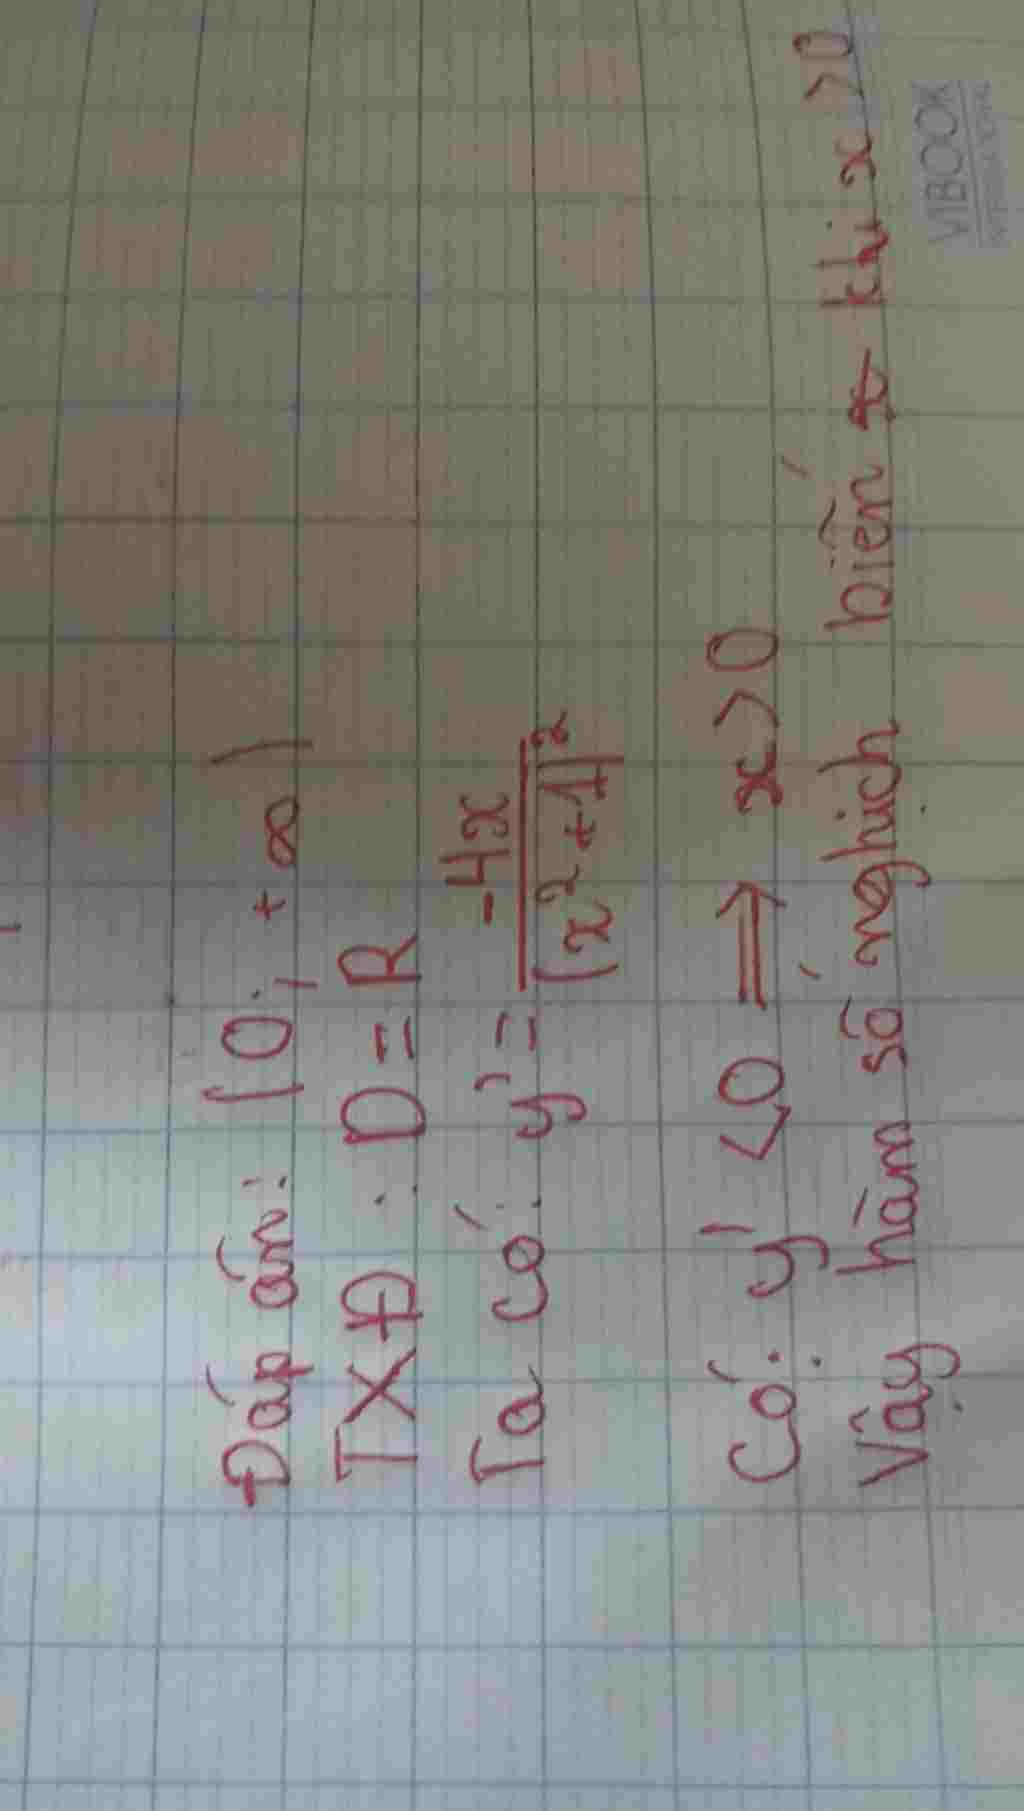 Đáp án: (0; +∞)
TXĐ: D = R
Ta có: y' = -4x/(x²+1)²
Có: y' < 0 ⟹ x > 0
Vậy hàm số nghịch biến khi x > 0
VIBOOK